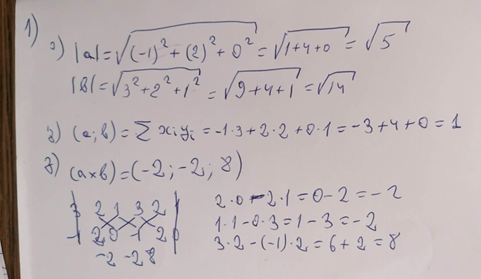 1)
г) |a|=√((-1)²+(2)²+0²)=√(1+4+0)=√5
|b|=√(3²+2²+1²)=√(9+4+1)=√14
д) (a;b)=∑ xᵢyᵢ=-1·3+2·2+0·1=-3+4+0=1
(a×b)=(-2;-2;8)
3 2 1 3 2 1
-1 2 0 -1 2 0
-2 -2 8
2·0-2·1=0-2=-2
1·1-0·3=1-3=-2
3·2-(-1)·2=6+2=8